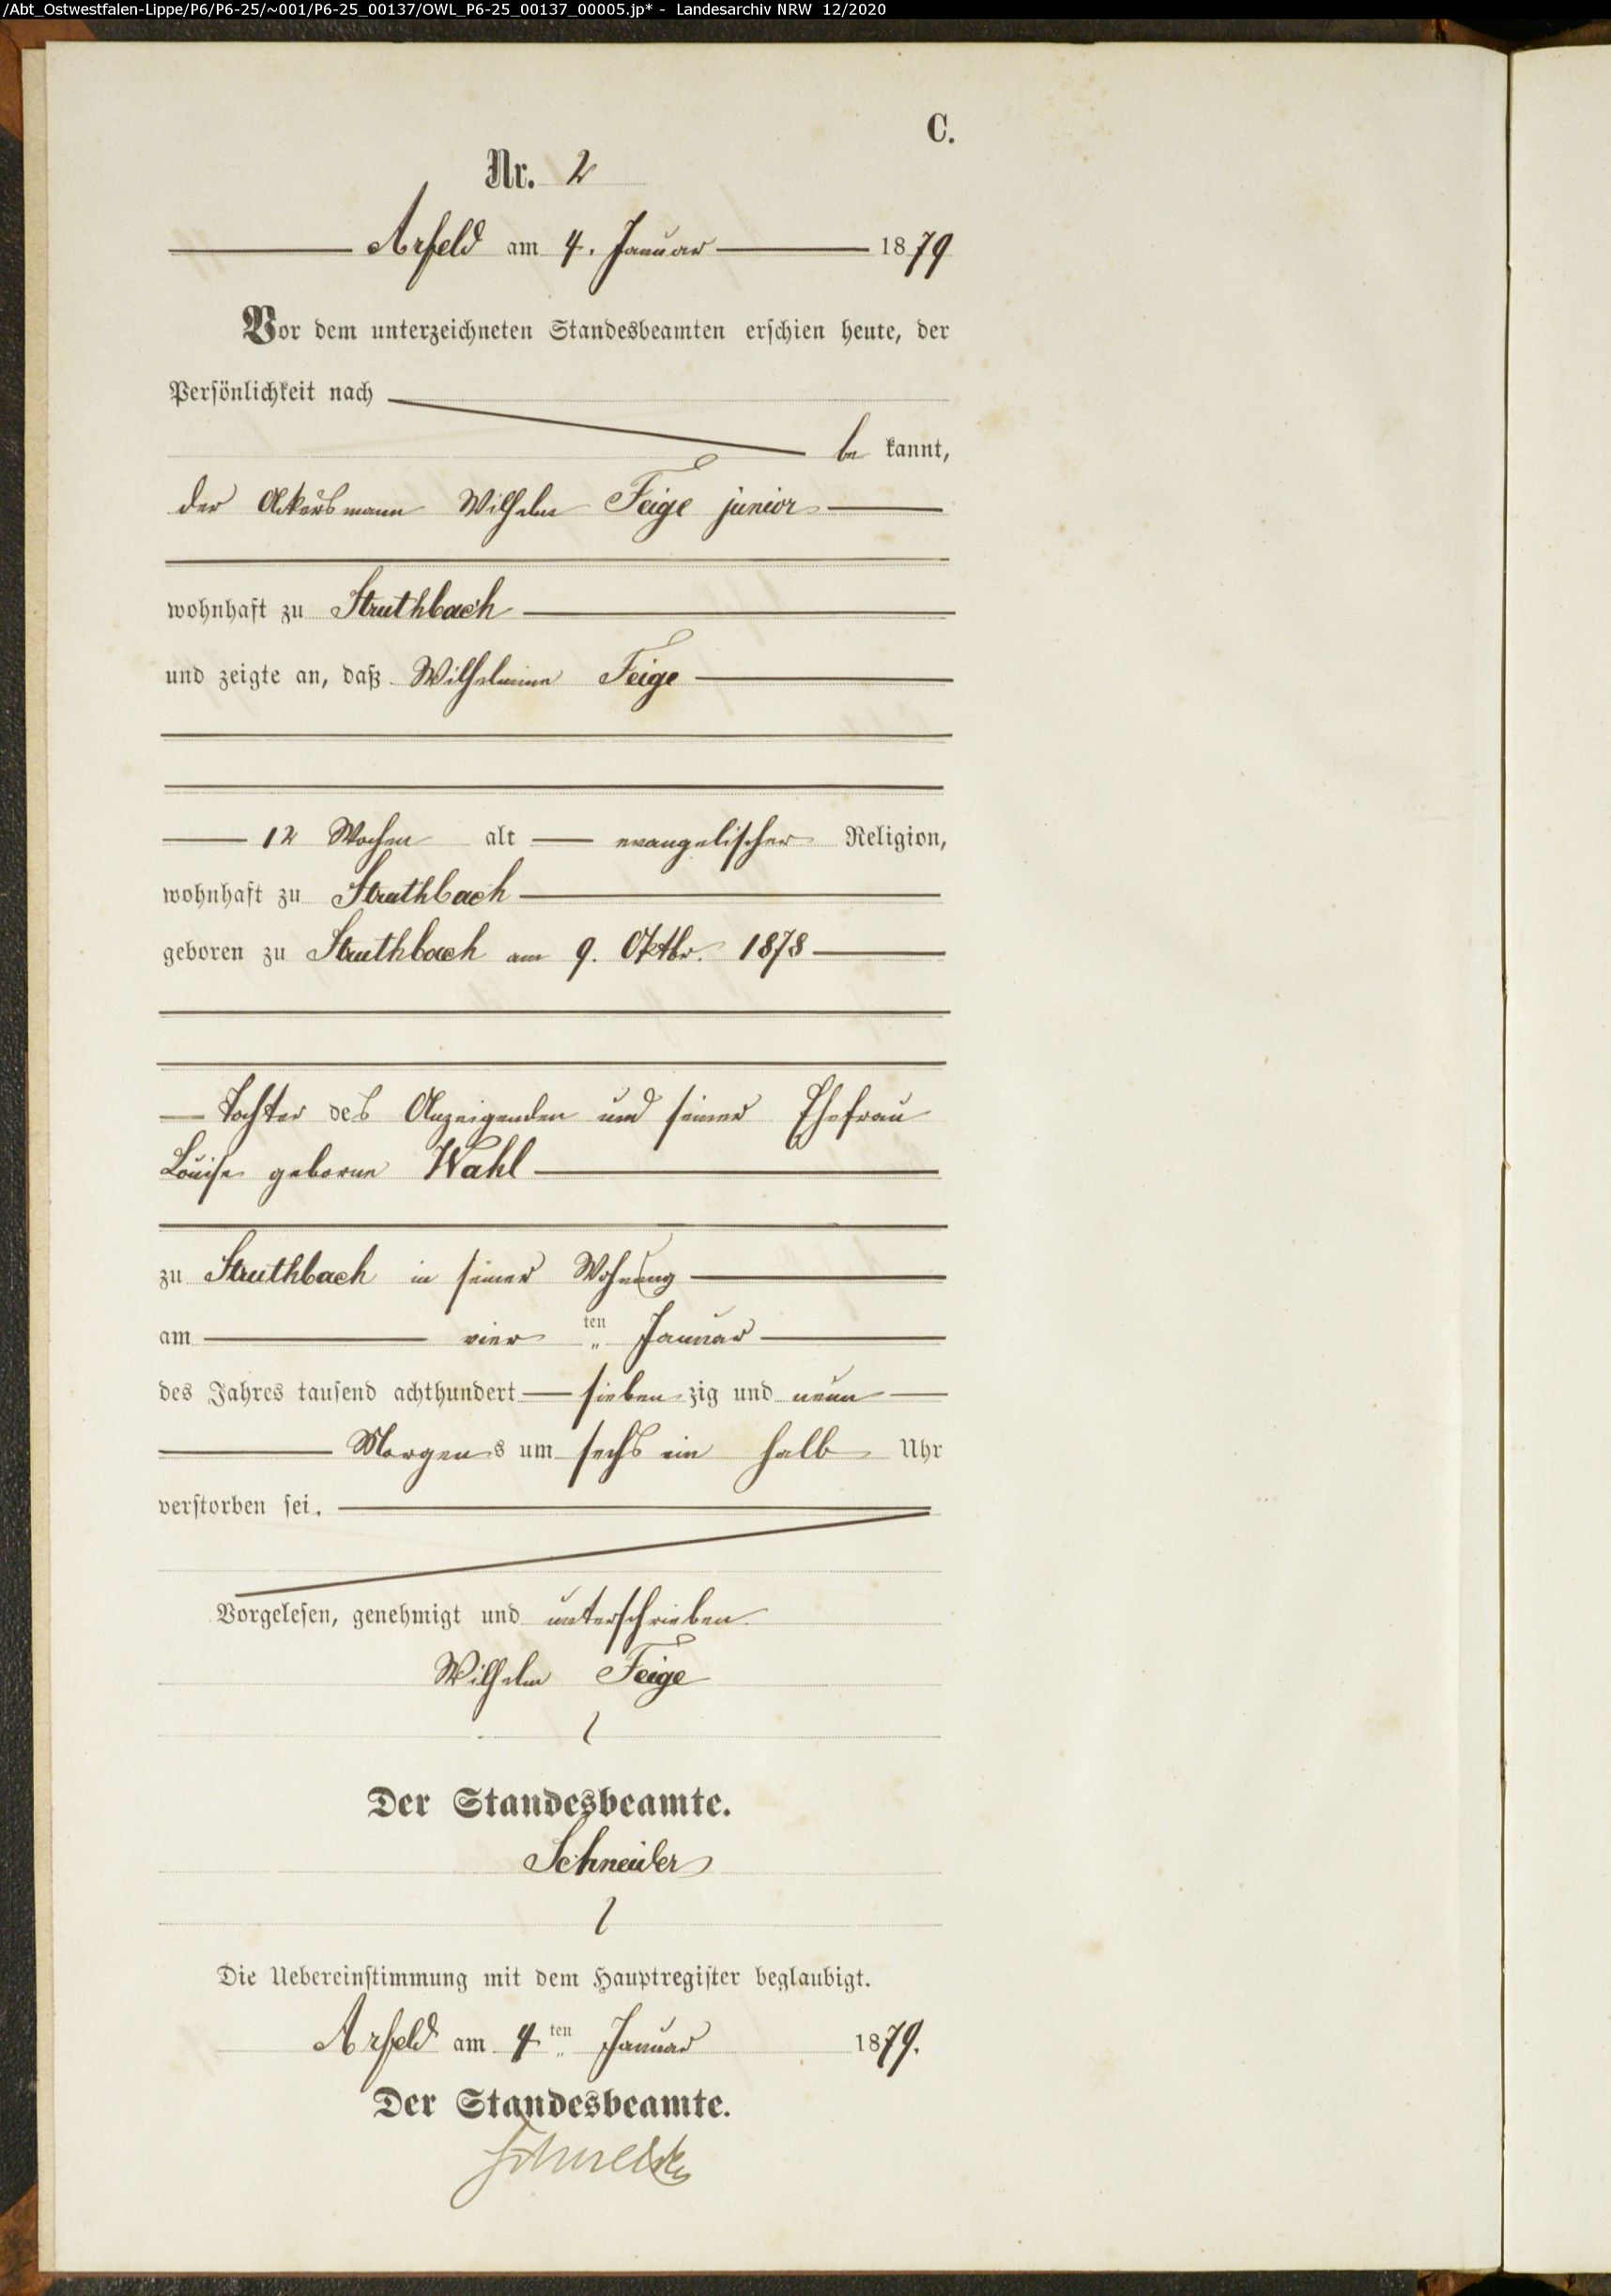 /Abt_Ostwestfalen-Lippe/P6/P6-25/~001/P6-25_00137/OWL_P6-25_00137_00005.jp* - Landesarchiv NRW 12/2020
C.
Nr. 2
Arfeld am 4. Januar 1879
Vor dem unterzeichneten Standesbeamten erschien heute, der
Persönlichkeit nach
be kannt,
der Ackersmann Wilhelm Feige junior
wohnhaft zu Struthbach
und zeigte an, daß Wilhelmine Feige
12 Wochen alt evangelischer Religion,
wohnhaft zu Struthbach
geboren zu Struthbach am 9. Oktbr. 1878
Tochter des Anzeigenden und seiner Ehefrau
Louise geborne Wahl
zu Struthbach in seiner Wohnung
am vier ten Januar
des Jahres tausend achthundert sieben zig und neun
Morgens um sechs ein halb Uhr
verstorben sei.
Vorgelesen, genehmigt und unterschrieben
Wilhelm Feige
Der Standesbeamte.
Schneider
Die Uebereinstimmung mit dem Hauptregister beglaubigt.
Arfeld am 4ten Januar 1879.
Der Standesbeamte.
Schneider